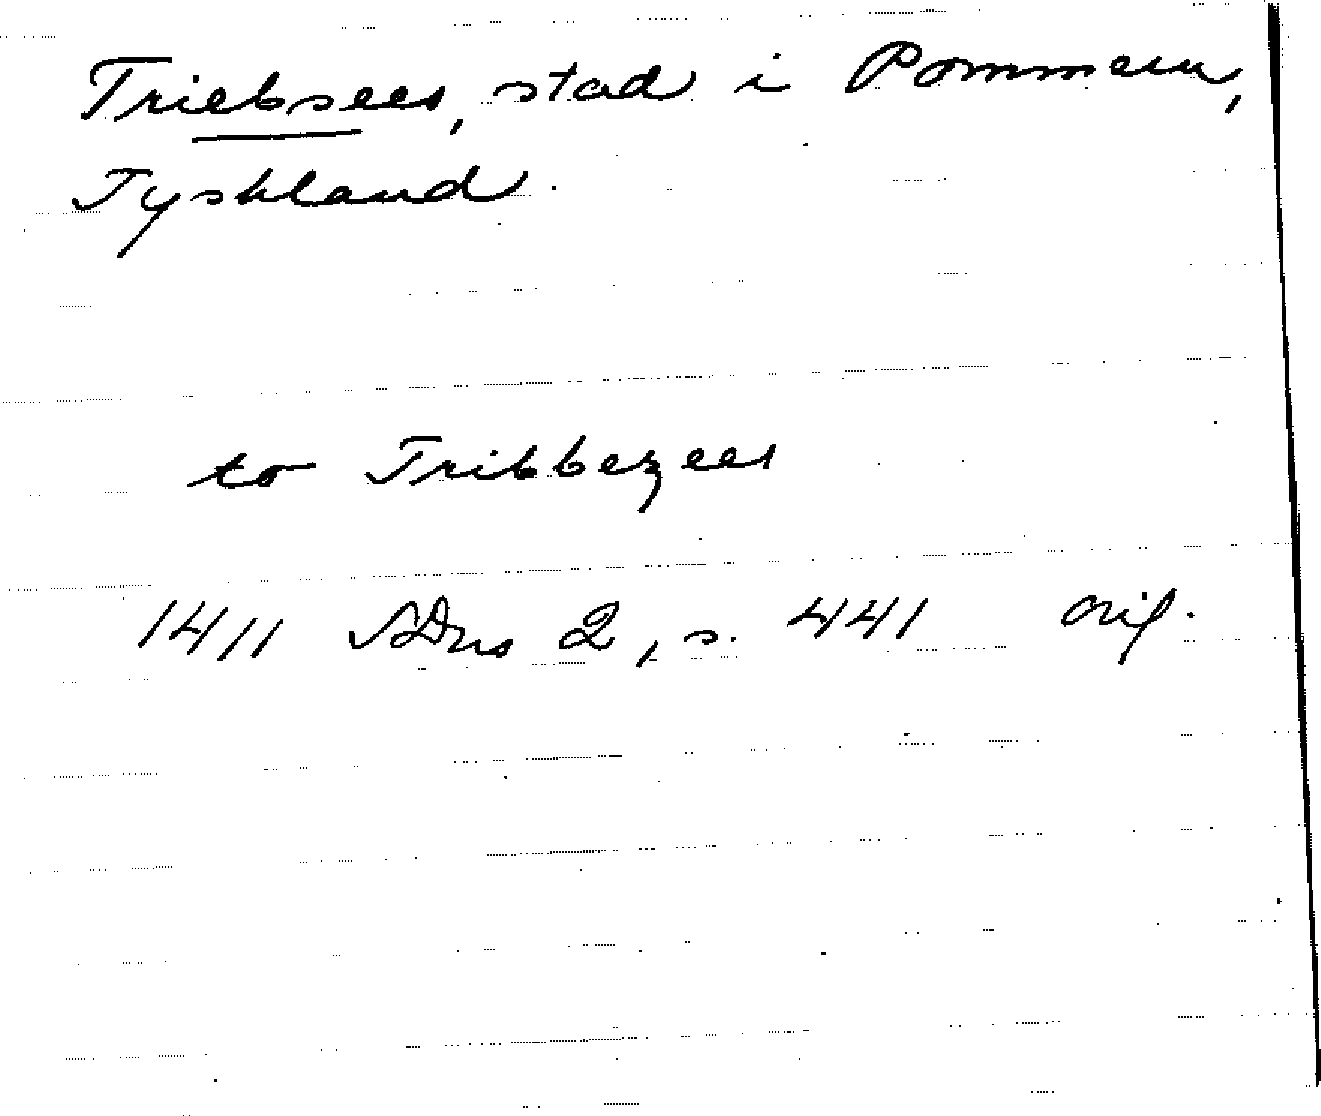 Triebsees, stad i Pommern,
Tyskland.
to Tribbezees
1411 SDns 2, s. 441 orig.